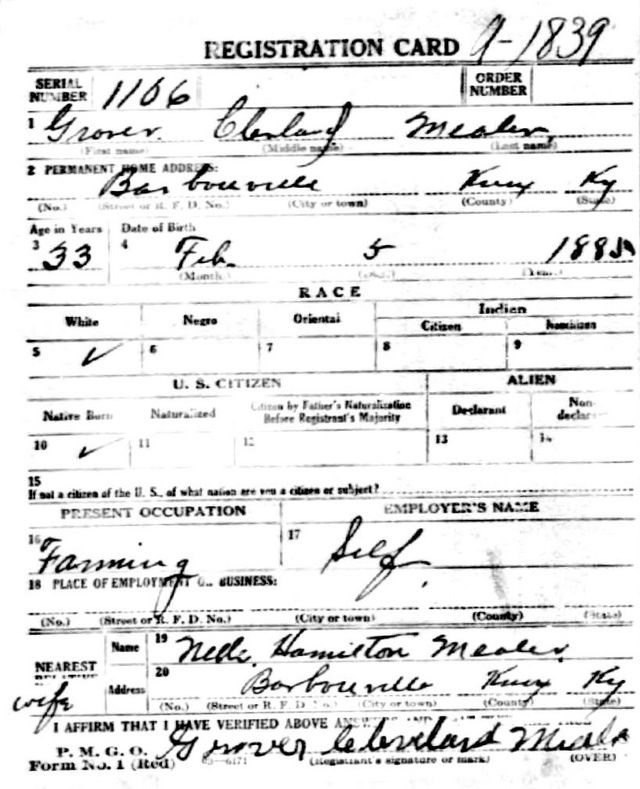 REGISTRATION CARD A-1839
SERIAL NUMBER 1106 ORDER NUMBER
1 Grover Cleveland Mealer
(First name) (Middle name) (Last name)
2 PERMANENT HOME ADDRESS:
Barbourville Knox Ky
(No.) (Street or R. F. D. No.) (City or town) (County) (State)
Age in Years Date of Birth
3 33 4 Feb. 5 1885
(Month) (Day) (Year)
RACE
White Negro Oriental Indian
Citizen Noncitizen
5 ✓ 6 7 8 9
U. S. CITIZEN ALIEN
Native Born Naturalized Citizen by Father's Naturalization Before Registrant's Majority Declarant Non-declarant
10 ✓ 11 12 13 14
15
If not a citizen of the U. S., of what nation are you a citizen or subject?
PRESENT OCCUPATION EMPLOYER'S NAME
16 Farming 17 Self
18 PLACE OF EMPLOYMENT OR BUSINESS:
(No.) (Street or R. F. D. No.) (City or town) (County) (State)
NEAREST RELATIVE Name 19 Hamilton Mealer
wife Address 20 Barbourville Knox Ky
(No.) (Street or R. F. D. No.) (City or town) (County) (State)
I AFFIRM THAT I HAVE VERIFIED ABOVE ANSWERS AND
P. M. G. O. Grover Cleveland Mealer
Form No. 1 (Red) 03-6171 (Registrant's signature or mark) (OVER)